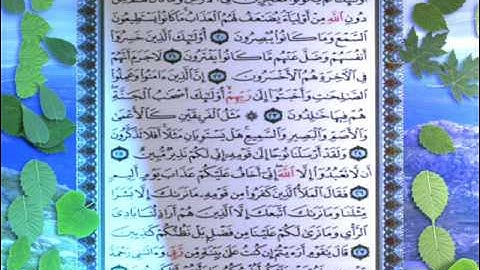 أُوْلَٰٓئِكَ لَمْ يَكُونُوا۟ مُعْجِزِينَ فِى ٱلْأَرْضِ وَمَا كَانَ لَهُم مِّن
دُونِ ٱللَّهِ مِنْ أَوْلِيَآءَ يُضَٰعَفُ لَهُمُ ٱلْعَذَابُ مَا كَانُوا۟ يَسْتَطِيعُونَ
ٱلسَّمْعَ وَمَا كَانُوا۟ يُبْصِرُونَ ٢٠ أُوْلَٰٓئِكَ ٱلَّذِينَ خَسِرُوٓا۟
أَنفُسَهُمْ وَضَلَّ عَنْهُم مَّا كَانُوا۟ يَفْتَرُونَ ٢١ لَا جَرَمَ أَنَّهُمْ
فِى ٱلْءَاخِرَةِ هُمُ ٱلْأَخْسَرُونَ ٢٢ إِنَّ ٱلَّذِينَ ءَامَنُوا۟ وَعَمِلُوا۟
ٱلصَّٰلِحَٰتِ وَأَخْبَتُوٓا۟ إِلَىٰ رَبِّهِمْ أُوْلَٰٓئِكَ أَصْحَٰبُ ٱلْجَنَّةِ
هُمْ فِيهَا خَٰلِدُونَ ٢٣ مَثَلُ ٱلْفَرِيقَيْنِ كَٱلْأَعْمَىٰ
وَٱلْأَصَمِّ وَٱلْبَصِيرِ وَٱلسَّمِيعِ هَلْ يَسْتَوِيَانِ مَثَلًا أَفَلَا تَذَكَّرُونَ
٢٤ وَلَقَدْ أَرْسَلْنَا نُوحًا إِلَىٰ قَوْمِهِۦٓ إِنِّى لَكُمْ نَذِيرٌ مُّبِينٌ
٢٥ أَن لَّا تَعْبُدُوٓا۟ إِلَّا ٱللَّهَ إِنِّىٓ أَخَافُ عَلَيْكُمْ عَذَابَ يَوْمٍ أَلِيمٍ
٢٦ فَقَالَ ٱلْمَلَأُ ٱلَّذِينَ كَفَرُوا۟ مِن قَوْمِهِۦ مَا نَرَىٰكَ إِلَّا بَشَرًا
مِّثْلَنَا وَمَا نَرَىٰكَ ٱتَّبَعَكَ إِلَّا ٱلَّذِينَ هُمْ أَرَاذِلُنَا بَادِىَ
ٱلرَّأْىِ وَمَا نَرَىٰ لَكُمْ عَلَيْنَا مِن فَضْلٍۭ بَلْ نَظُنُّكُمْ كَٰذِبِينَ
٢٧ قَالَ يَٰقَوْمِ أَرَءَيْتُمْ إِن كُنتُ عَلَىٰ بَيِّنَةٍ مِّن رَّبِّى وَءَاتَىٰنِى رَحْمَةً